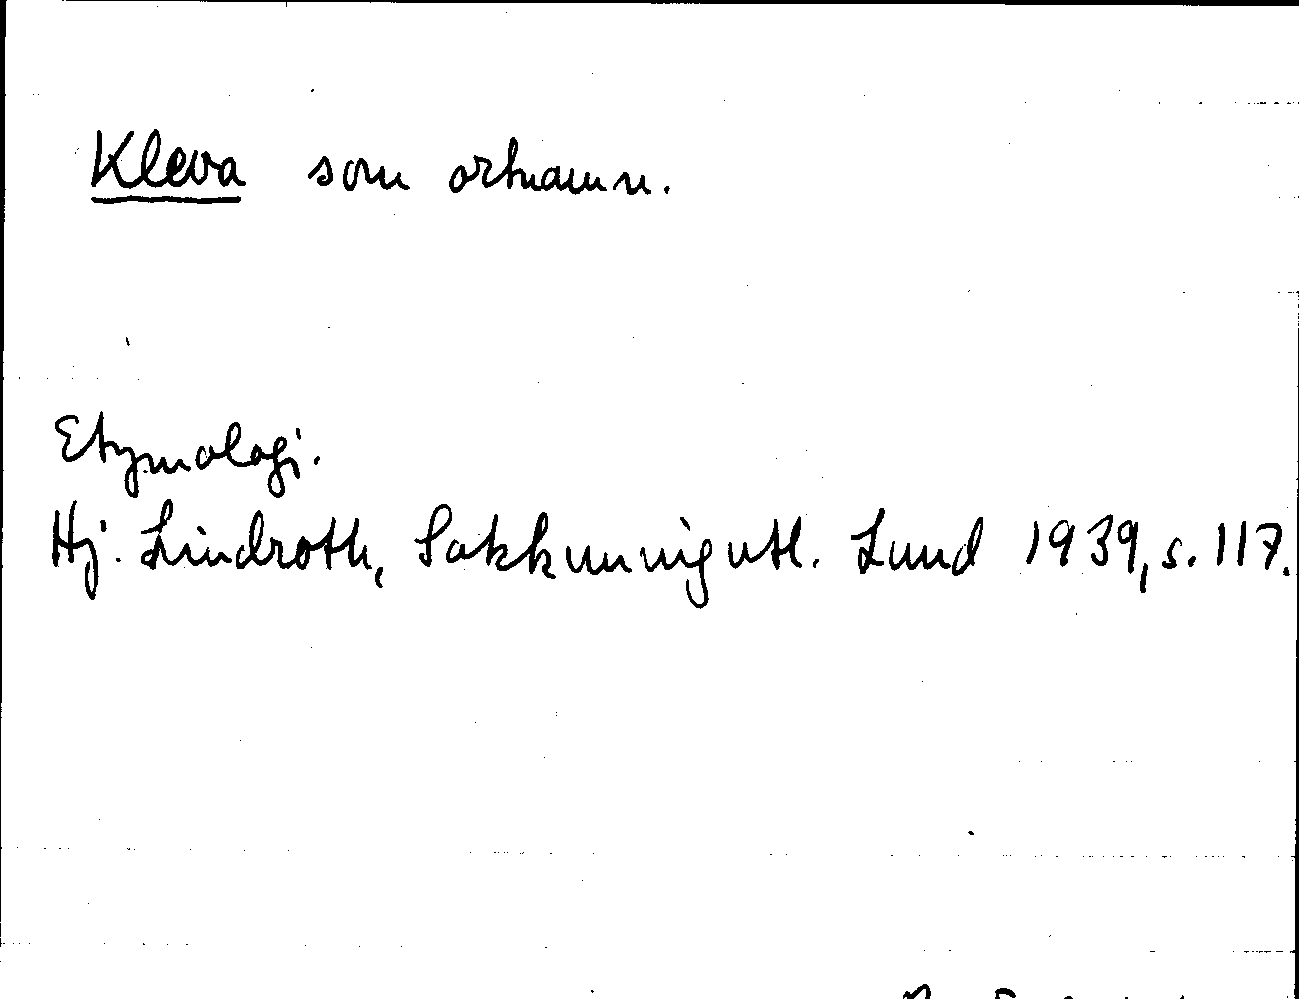 Kleva som ortnamn.
Etymologi.
Hj. Lindroth, Sakkunnigutl. Lund 1939, s. 117.